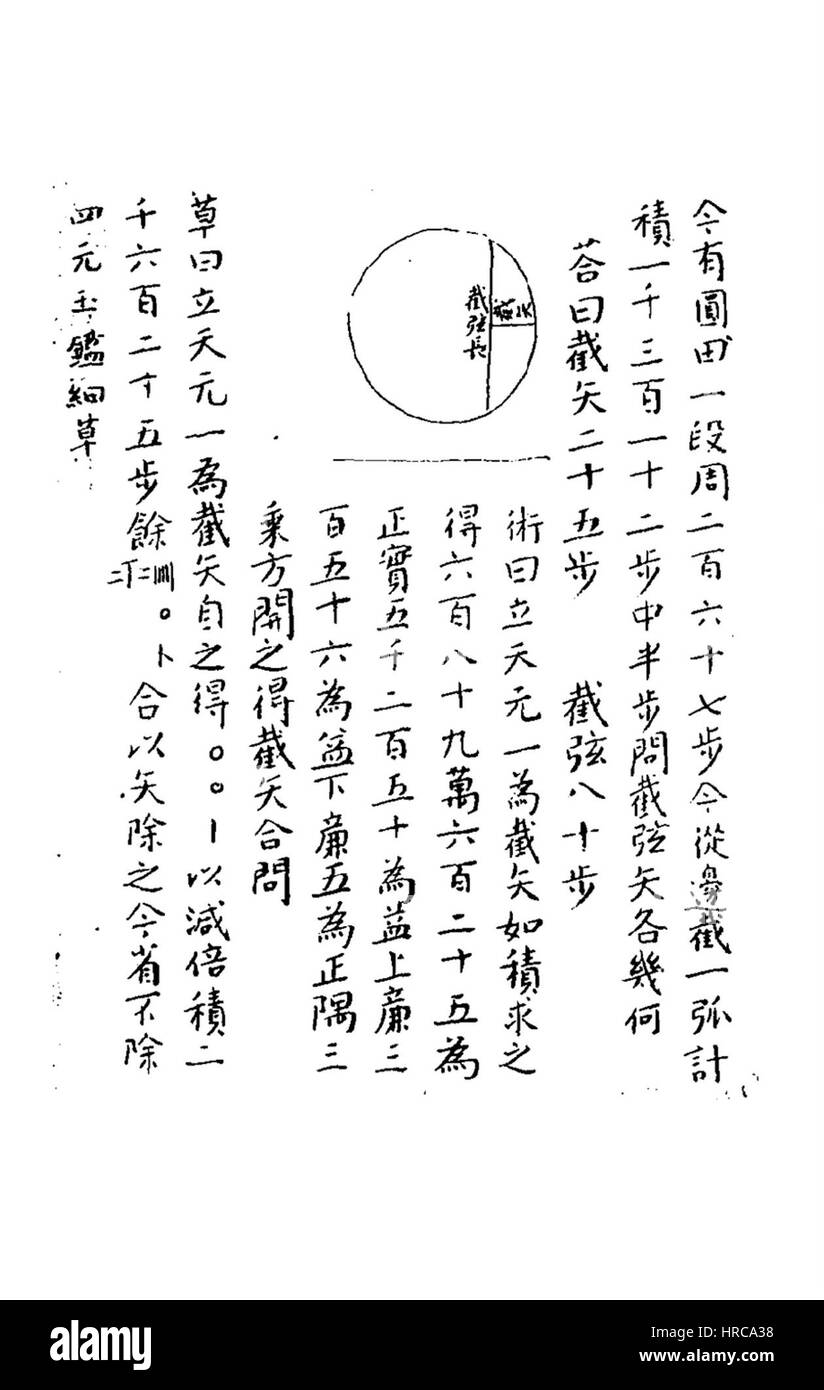 今有圓田一段周二百六十七步今從邊截一弧計
積一千三百一十二步中半步問截弦矢各幾何
荅曰截矢二十五步 截弦八十步
截弦長
截矢
術曰立天元一為截矢如積求之
得六百八十九萬六百二十五為
正實五千二百五十為益上廉三
百五十六為益下廉五為正隅三
乘方開之得截矢合問
草曰立天元一為截矢自之得〇〇〡以減倍積二
千六百二十五步餘 合以矢除之今省不除
四元玉鑑細草
alamy
Image ID: HRCA38
www.alamy.com